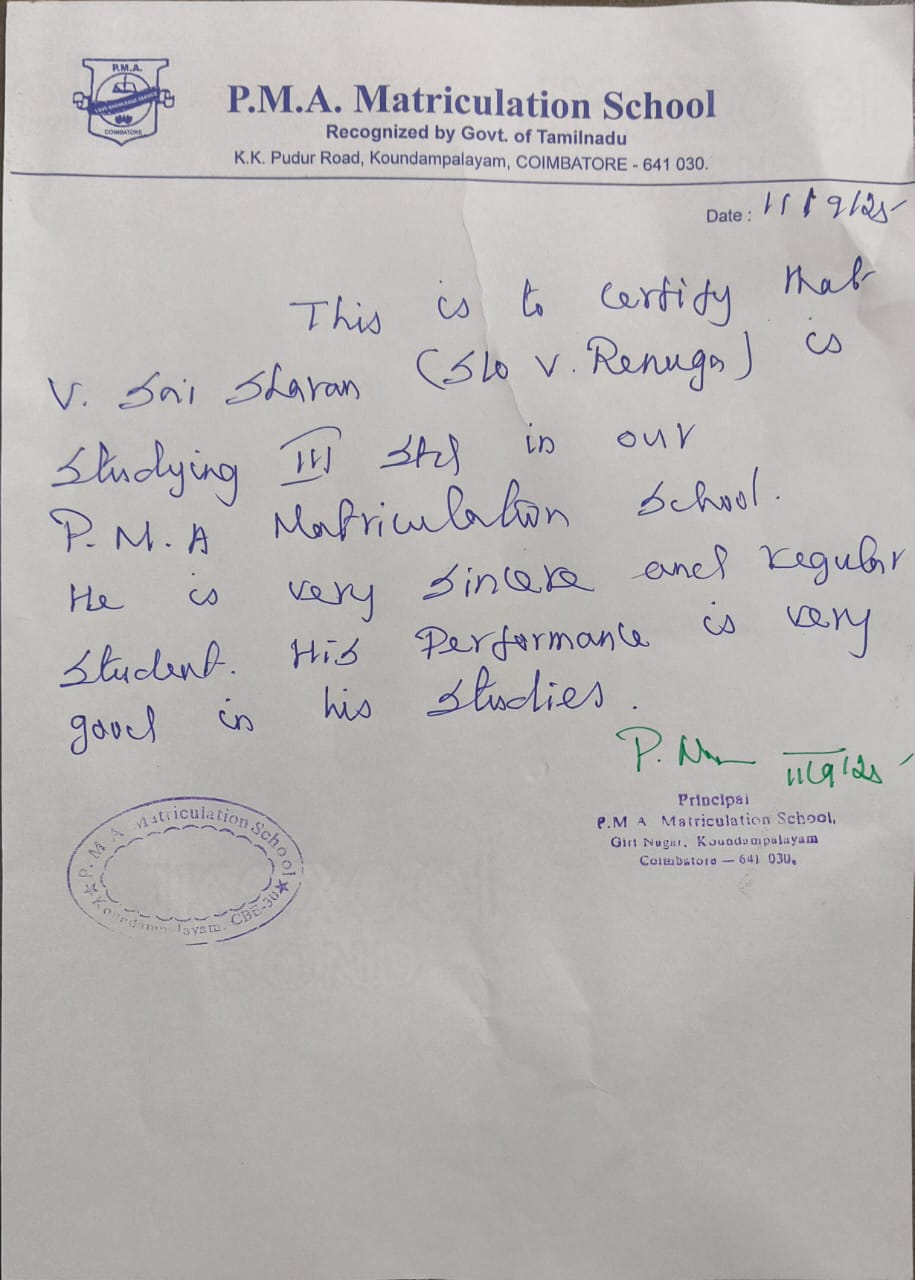 P.M.A.
LOVE KNOWLEDGE SERVICE
COIMBATORE
P.M.A. Matriculation School
Recognized by Govt. of Tamilnadu
K.K. Pudur Road, Koundampalayam, COIMBATORE - 641 030.
Date : 11/9/25
This is to certify that
V. Sai Sharan (S/o V. Renuga) is
studying III std in our
P.M.A Matriculation School.
He is very sincere and regular
student. His Performance is very
good in his studies.
P. 11/9/25
Principal
P.M A Matriculation School,
Giri Nagar, Koundampalayam
Coimbatore — 641 030.
P. M. A. Matriculation School
Koundampalayam, CBE-30